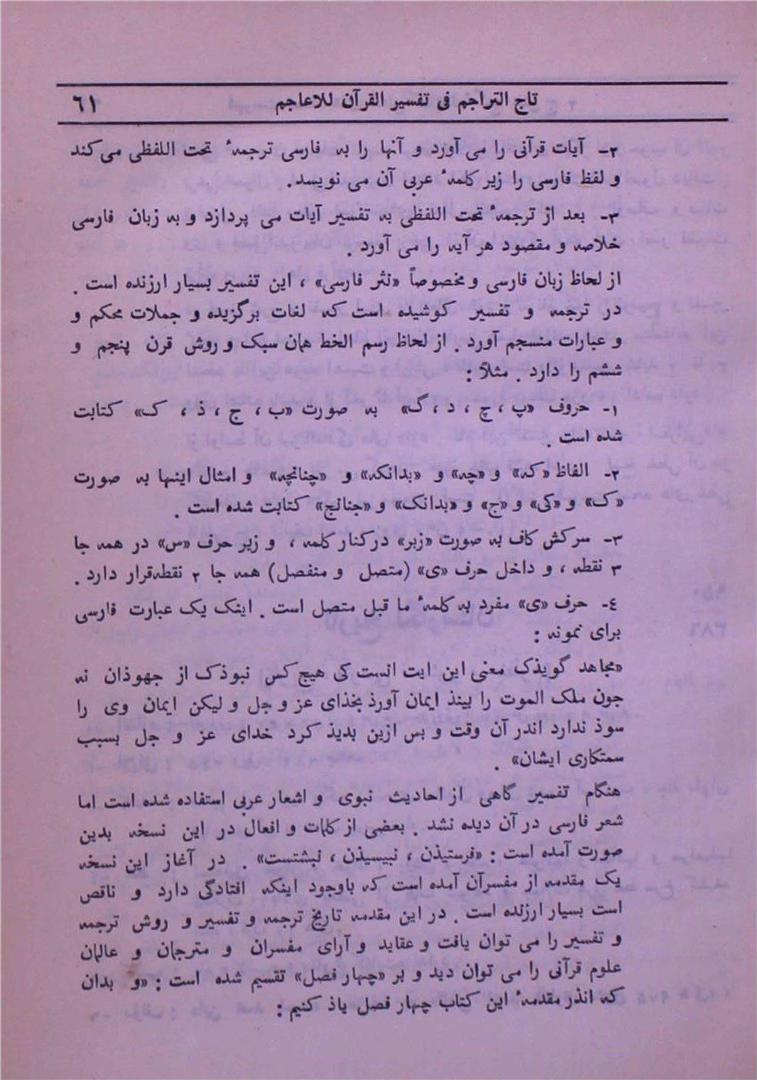 تاج التراجم فی تفسیر القرآن للاعاجم
٦١
٢- آیات قرآنی را می آورد و آنها را به فارسی ترجمهٔ تحت اللفظی می کند
و لفظ فارسی را زیر کلمهٔ عربی آن می نویسد.
٣- بعد از ترجمهٔ تحت اللفظی به تفسیر آیات می پردازد و به زبان فارسی
خلاصه و مقصود هر آیه را می آورد .
از لحاظ زبان فارسی و مخصوصاً «نثر فارسی» ، این تفسیر بسیار ارزنده است .
در ترجمه و تفسیر کوشیده است که لغات برگزیده و جملات محکم و
و عبارات منسجم آورد . از لحاظ رسم الخط همان سبک و روش قرن پنجم و
ششم را دارد . مثلاً :
١- حروف «پ ، چ ، د ، گ» به صورت «ب ، ج ، ذ ، ک» کتابت
شده است .
٢- الفاظ «که» و «چه» و «بدانکه» و «چنانچه» و امثال اینها به صورت
«ک» و «کی» و «ج» و «بدانک» و «جنانج» کتابت شده است .
٣- سرکش کاف به صورت «زبر» در کنار کلمه ، و زیر حرف «س» در همه جا
٣ نقطه ، و داخل حرف «ی» (متصل و منفصل) همه جا ٢ نقطه قرار دارد .
٤- حرف «ی» مفرد به کلمهٔ ما قبل متصل است . اینک یک عبارت فارسی
برای نمونه :
«مجاهد گویذک معنی این ایت انست کی هیچ کس نبوذک از جهوذان نه
جون ملک الموت را بینذ ایمان آورذ بخذای عز و جل و لیکن ایمان وی را
سوذ ندارد اندر آن وقت و بس ازین بدیذ کرد خدای عز و جل بسبب
ستمکاری ایشان» .
هنگام تفسیر گاهی از احادیث نبوی و اشعار عربی استفاده شده است اما
شعر فارسی در آن دیده نشد . بعضی از کلمات و افعال در این نسخه بدین
صورت آمده است : «فرستیذن ، نبیسیذن ، نبشتست» . در آغاز این نسخه
یک مقدمه از مفسرآن آمده است که باوجود اینکه افتادگی دارد و ناقص
است بسیار ارزنده است . در این مقدمه تاریخ ترجمه و تفسیر و روش ترجمه
و تفسیر را می توان یافت و عقاید و آرای مفسران و مترجمان و عالمان
علوم قرآنی را می توان دید و بر «چهار فصل» تقسیم شده است : «و بدان
که انذر مقدمهٔ این کتاب چهار فصل یاذ کنیم :